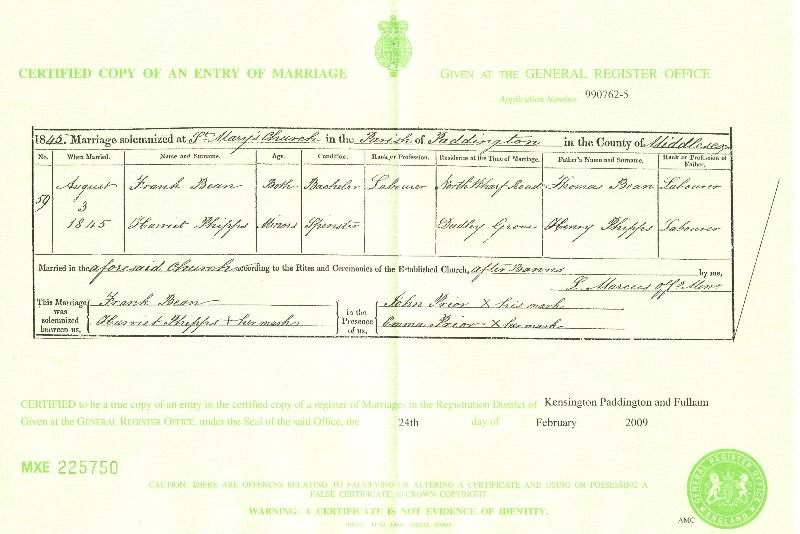 CERTIFIED COPY OF AN ENTRY OF MARRIAGE
GIVEN AT THE GENERAL REGISTER OFFICE
Application Number 990762-5
1845. Marriage solemnized at St Mary's Church in the Parish of Paddington in the County of Middlesex
No. When Married. Name and Surname. Age. Condition. Rank or Profession. Residence at the Time of Marriage. Father's Name and Surname. Rank or Profession of Father.
59 August 3 1845
Frank Bean Both Bachelor Labourer North Wharf Road Thomas Bean Labourer
Harriet Phipps Minors Spinster Dudley Grove Henry Phipps Labourer
Married in the aforesaid Church according to the Rites and Ceremonies of the Established Church, after Banns by me,
Marcus Offg Minr
This Marriage was solemnized between us,
Frank Bean
Harriet Phipps x her mark
in the Presence of us,
John Prior x his mark
Emma Prior x her mark
CERTIFIED to be a true copy of an entry in the certified copy of a register of Marriages in the Registration District of Kensington Paddington and Fulham
Given at the GENERAL REGISTER OFFICE, under the Seal of the said Office, the 24th day of February 2009
MXE 225750
CAUTION: THERE ARE OFFENCES RELATING TO FALSIFYING OR ALTERING A CERTIFICATE AND USING OR POSSESSING A
FALSE CERTIFICATE. © CROWN COPYRIGHT
WARNING: A CERTIFICATE IS NOT EVIDENCE OF IDENTITY.
AMC
GENERAL REGISTER OFFICE
ENGLAND